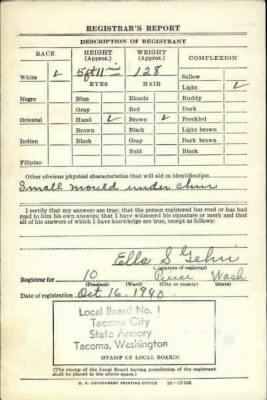 REGISTRAR'S REPORT
DESCRIPTION OF REGISTRANT
RACE
HEIGHT
(Approx.)
WEIGHT
(Approx.)
COMPLEXION
5 ft 11 in
128
White
EYES
HAIR
Sallow
Light
Negro
Blue
Blonde
Ruddy
Gray
Red
Dark
Oriental
Hazel
Brown
Freckled
Brown
Black
Light brown
Indian
Black
Gray
Dark brown
Bald
Black
Filipino
Other obvious physical characteristics that will aid in identification
Small mould under chin
I certify that my answers are true; that the person registered has read or has had
read to him his own answers; that I have witnessed his signature or mark and that
all of his answers of which I have knowledge are true, except as follows:
Ella S
(Signature of registrar)
Registrar for 10 Pierce Wash
(Precinct) (Ward) (City or county) (State)
Date of registration Oct 16, 1940
Local Board No. 1
Tacoma City
State Armory
Tacoma, Washington
(STAMP OF LOCAL BOARD)
(The stamp of the Local Board having jurisdiction of the registrant
shall be placed in the above space.)
U. S. GOVERNMENT PRINTING OFFICE